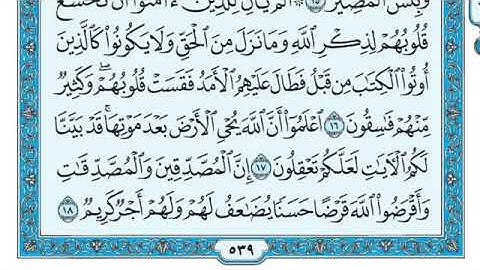 وَبِئْسَ ٱلْمَصِيرُ ١٥ ۞ أَلَمْ يَأْنِ لِلَّذِينَ ءَامَنُوٓا۟ أَن تَخْشَعَ
قُلُوبُهُمْ لِذِكْرِ ٱللَّهِ وَمَا نَزَلَ مِنَ ٱلْحَقِّ وَلَا يَكُونُوا۟ كَٱلَّذِينَ
أُوتُوا۟ ٱلْكِتَـٰبَ مِن قَبْلُ فَطَالَ عَلَيْهِمُ ٱلْأَمَدُ فَقَسَتْ قُلُوبُهُمْ ۖ وَكَثِيرٌ
مِّنْهُمْ فَـٰسِقُونَ ١٦ ٱعْلَمُوٓا۟ أَنَّ ٱللَّهَ يُحْىِ ٱلْأَرْضَ بَعْدَ مَوْتِهَا ۚ قَدْ بَيَّنَّا
لَكُمُ ٱلْـَٔايَـٰتِ لَعَلَّكُمْ تَعْقِلُونَ ١٧ إِنَّ ٱلْمُصَّدِّقِينَ وَٱلْمُصَّدِّقَـٰتِ
وَأَقْرَضُوا۟ ٱللَّهَ قَرْضًا حَسَنًا يُضَـٰعَفُ لَهُمْ وَلَهُمْ أَجْرٌ كَرِيمٌ ١٨
٥٣٩